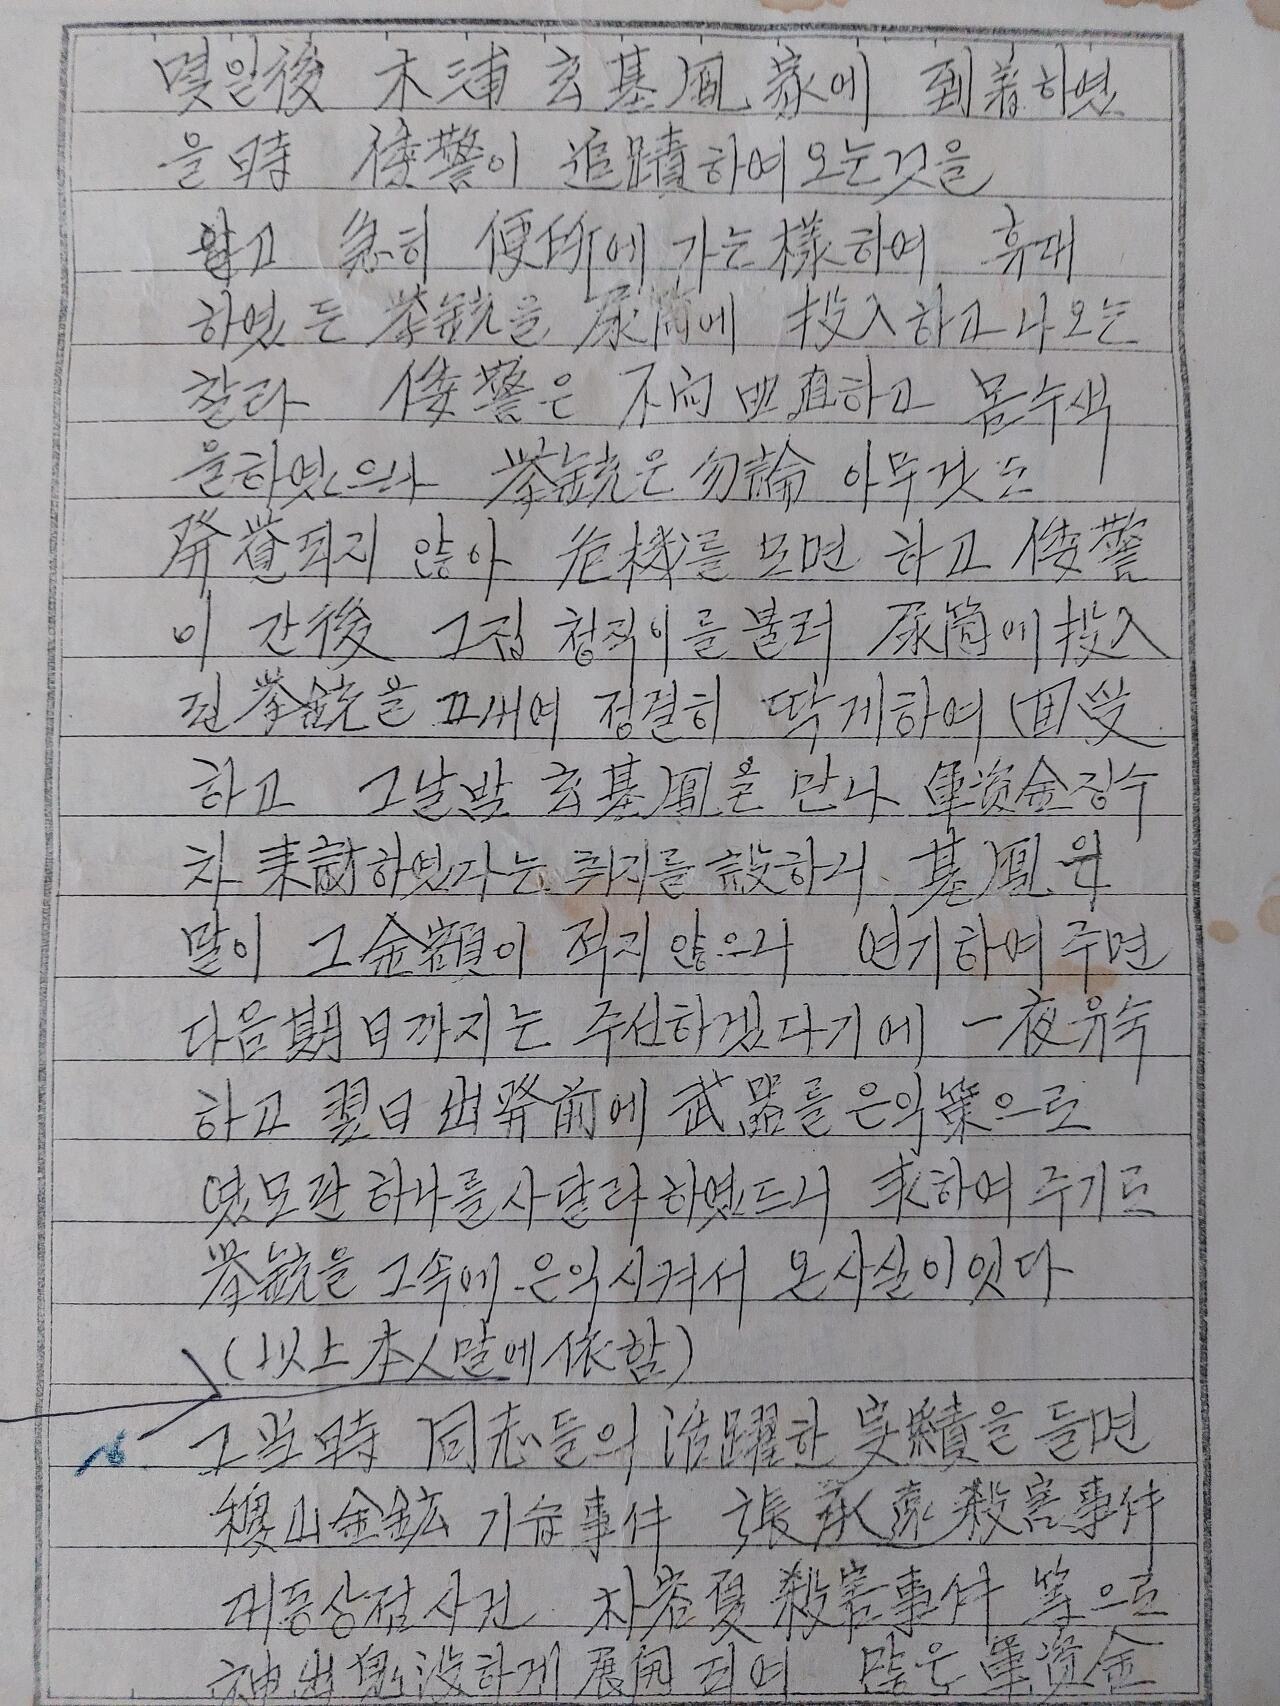 몇일後 木浦 玄基鳳家에 到着하였
을時 倭警이 追蹟하여오는것을
알고 急히 便所에 가는樣하여 휴대
하였든 拳銃을 尿筒에 投入하고나오는
찰라 倭警은 不問曲直하고 몸수색
을하였으나 拳銃은 勿論 아무것도
発覚되지 않아 危機를 모면 하고 倭警
이 간後 그집 청직이를불러 尿筒에投入
된拳銃을 끄내여 정결히 딱게하여 回受
하고 그날밤 玄基鳳을 만나 軍資金징수
차 来訪하였다는 취지를 說하니 基鳳의
말이 그金額이 적지않으니 연기하여주면
다음期日까지는 주선하겠다기에 一夜유숙
하고 翌日出発前에 武器를은익策으로
엿모판하나를사달라하였드니 求하여주기로
拳銃을그속에은익시켜서 온사실이잇다
(以上本人말에依함)
그当時 同志들의 活躍한 実績을들면
稷山金鉱 기습事件 張承遠殺害事件
대동상점사건 朴容夏殺害事件 等으로
神出鬼没하게展開되여 많은軍資金